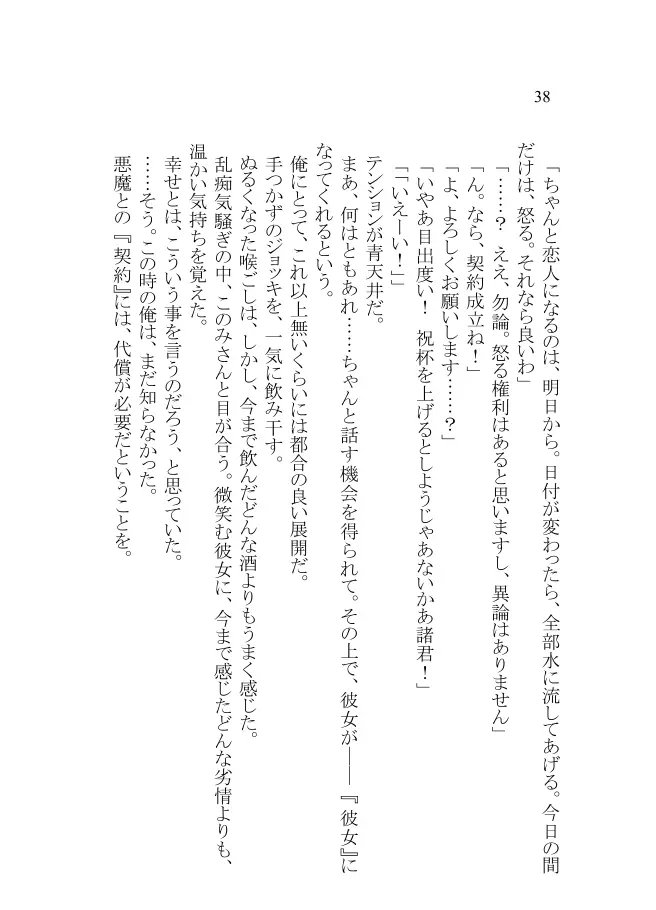 38
「ちゃんと恋人になるのは、明日から。日付が変わったら、全部水に流してあげる。今日の間
だけは、怒る。それなら良いわ」
「……？　ええ、勿論。怒る権利はあると思いますし、異論はありません」
「ん。なら、契約成立ね！」
「よ、よろしくお願いします……？」
「いやあ目出度い！　祝杯を上げるとしようじゃあないかあ諸君！」
「「いえーい！」」
テンションが青天井だ。
まあ、何はともあれ……ちゃんと話す機会を得られて。その上で、彼女が――『彼女』に
なってくれるという。
俺にとって、これ以上無いくらいには都合の良い展開だ。
手つかずのジョッキを、一気に飲み干す。
ぬるくなった喉ごしは、しかし、今まで飲んだどんな酒よりもうまく感じた。
乱痴気騒ぎの中、このみさんと目が合う。微笑む彼女に、今まで感じたどんな劣情よりも、
温かい気持ちを覚えた。
幸せとは、こういう事を言うのだろう、と思っていた。
……そう。この時の俺は、まだ知らなかった。
悪魔との『契約』には、代償が必要だということを。